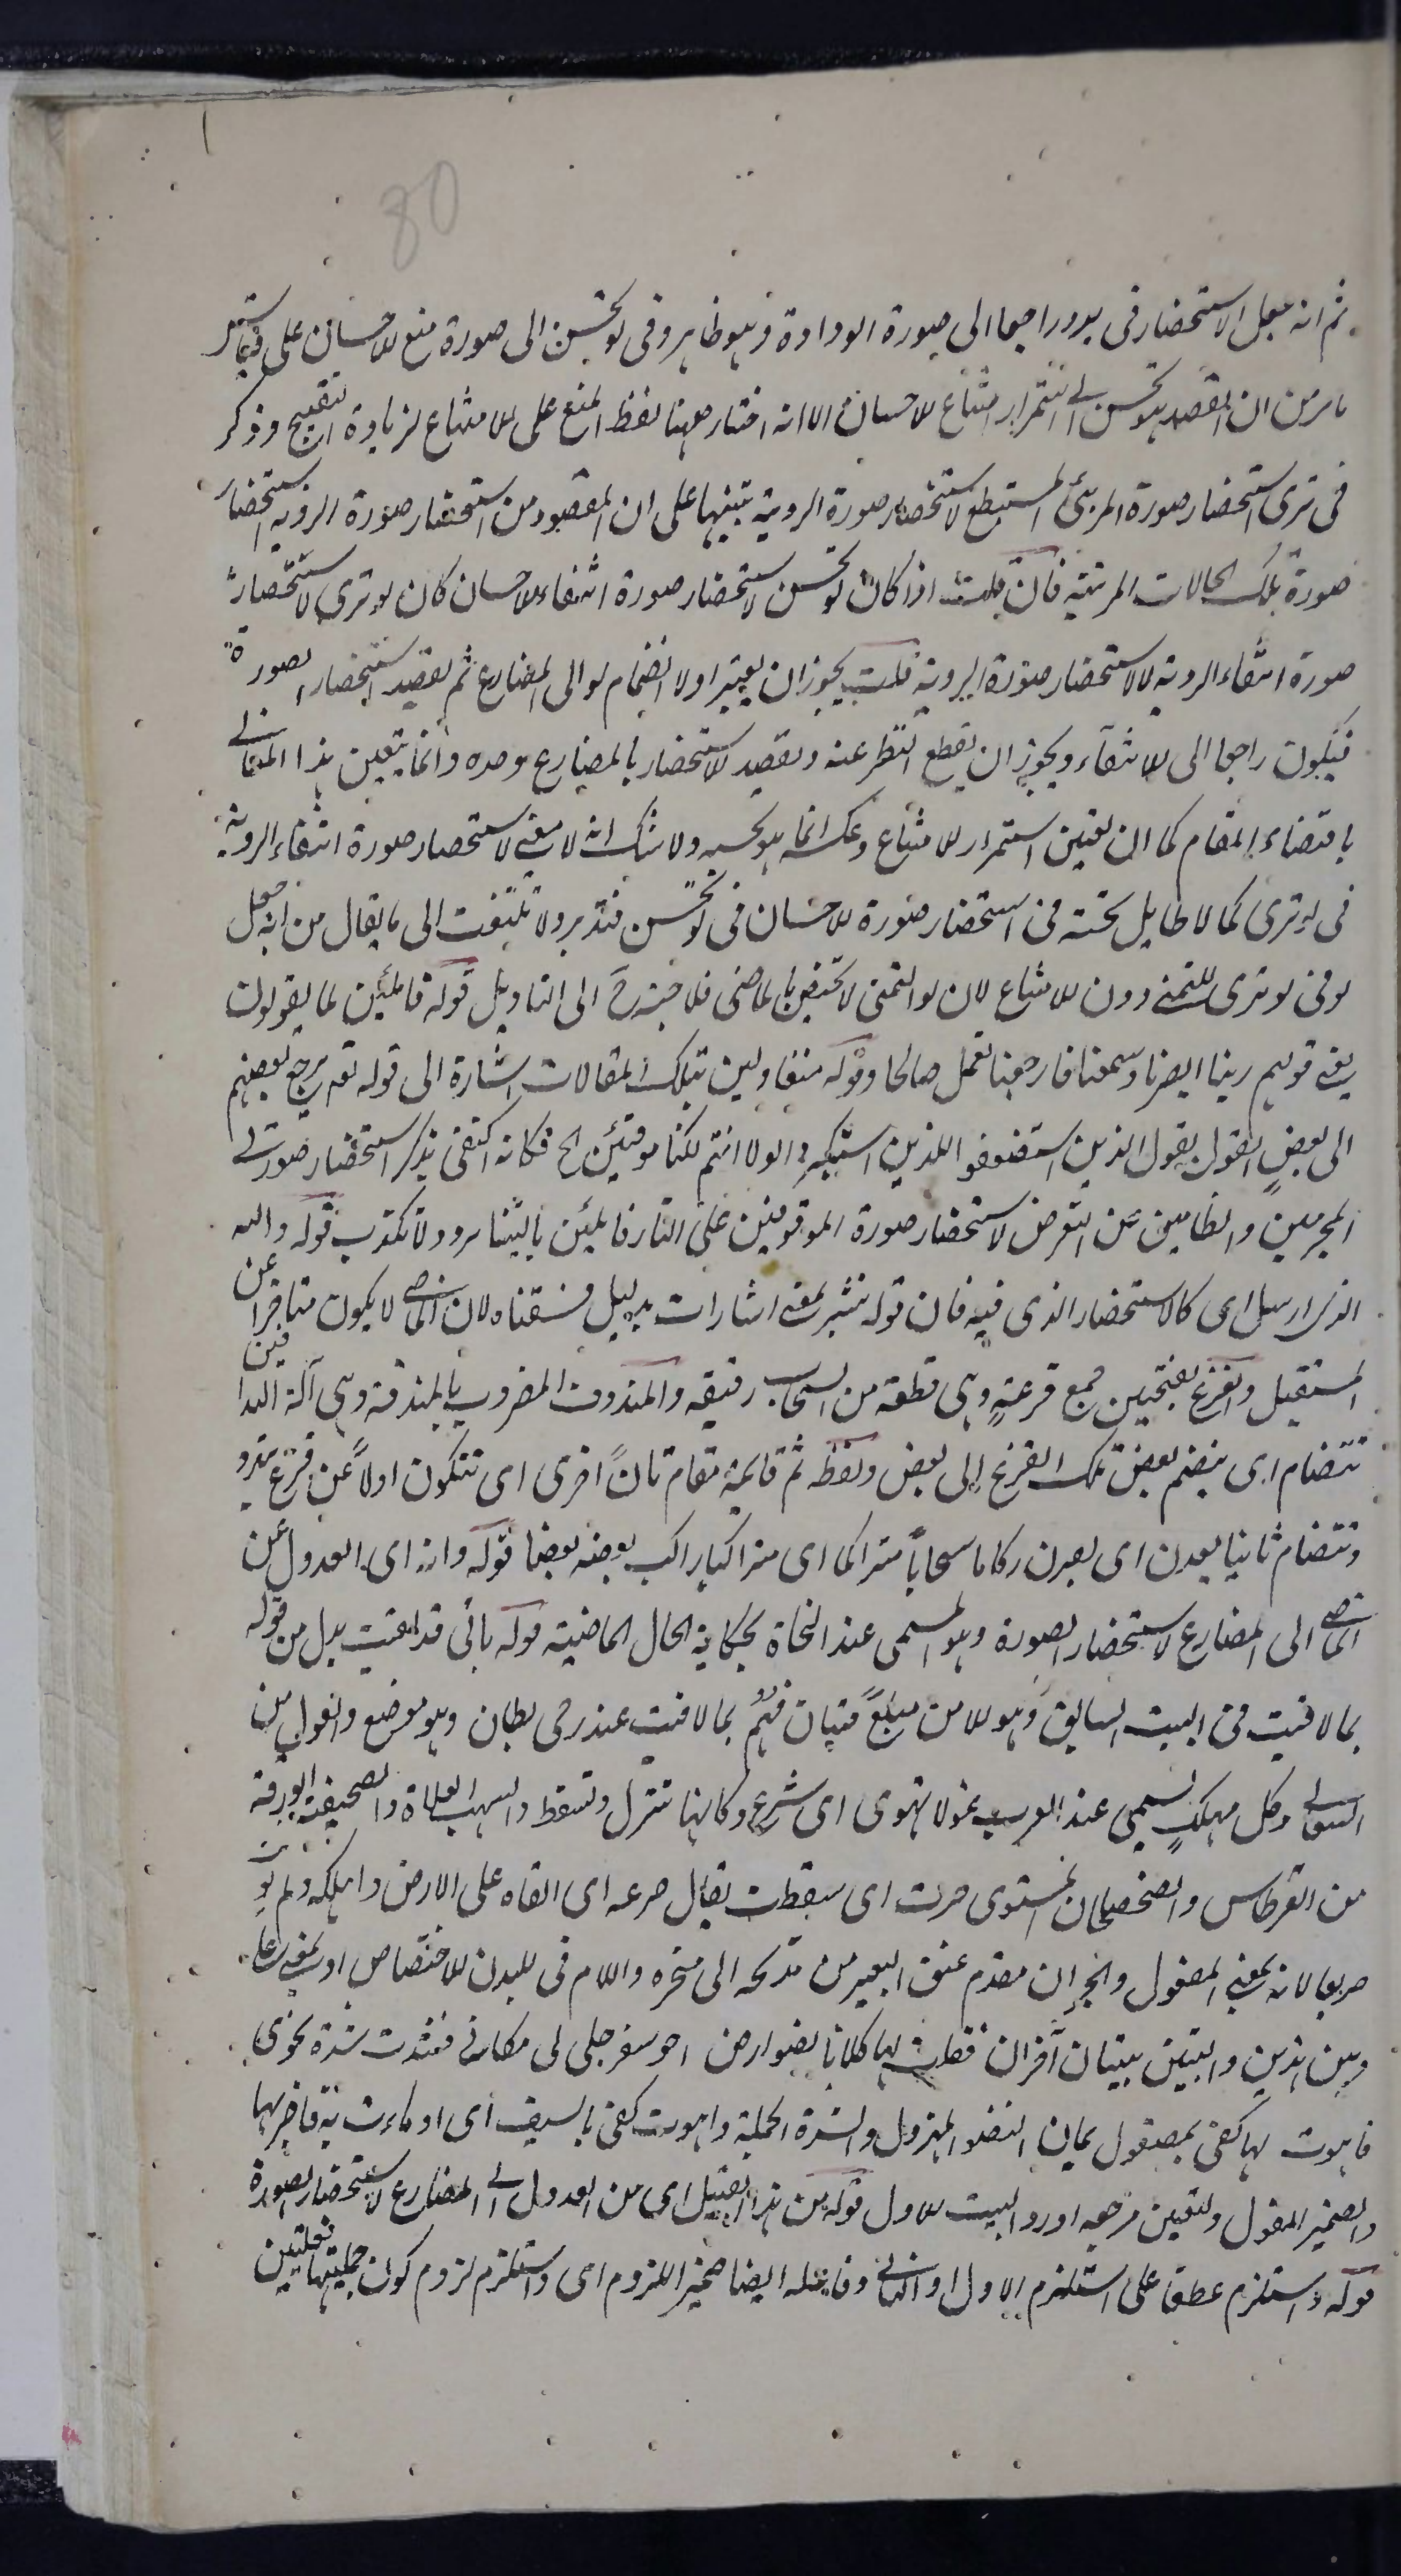 80
ثم انه جعل الاستحضار فى يود راجعا الى صورة الودادة وهو ظاهر وفى لو تحسن الى صورة منع الاحسان على قياس
ما مر من ان القصد بلو تحسن الى استمرار امتناع الاحسان الا انه اختار ههنا لفظ المنع على الامتناع لزيادة التقبيح وذكر
فى ترى استحضار صورة المرئى المستتبع لاستحضار صورة الروية تنبيها على ان المقصود من استحضار صورة الروية استحضار
صورة تلك الحالات المرئية فان قلت اذا كان لو تحسن لاستحضار صورة انتفاء الاحسان كان لو ترى لاستحضار
صورة انتفاء الروية لا لاستحضار صورة الروية قلت يجوز ان يعتبر اولا انضمام لو الى المضارع ثم يقصد استحضار الصورة
فيكون راجعا الى الانتفاء ويجوز ان يقطع النظر عنه ويقصد الاستحضار بالمضارع وحده وانما يتعين هذا المعانى
باقتضاء المقام كما ان تعين استمرار الامتناع وعكسه انما هو بحسبه ولا شك انه لا معنى لاستحضار صورة انتفاء الروية
فى لو ترى كما لا طايل تحته فى استحضار صورة الاحسان فى لو تحسن فتدبر ولا تلتفت الى ما يقال من انه جعل
لو فى لو ترى للتمنى دون الامتناع لان لو التمنى لا تختص بالماضى فلا حاجة ح الى التاويل قوله قائلين لما يقولون
يعنى قولهم ربنا ابصرنا وسمعنا فارجعنا نعمل صالحا وقوله متقاولين تلك المقالات اشارة الى قوله تعه يرجع بعضهم
الى بعض القول يقول الذين استضعفوا للذين استكبروا لولا انتم لكنا مومنين الخ فكانه اكتفى بذكر استحضار صورتى
المجرمين والظالمين عن التعرض لاستحضار صورة الموقوفين على النار قائلين ياليتنا نرد ولا نكذب قوله والله
الذى ارسل اى كالاستحضار الذى فيه فان قوله فتثير بمعنى اثارت بدليل فسقناه لان الماضى لا يكون متاخرا عن
المستقبل والقزع بفتحتين جمع قزعة وهى قطعة من السحاب رقيقه والمندوف المضروب بالمندفة وهى آلة الندافين
تتضام اى ينضم بعض تلك القزع الى بعض ولفظ ثم قايمة مقام تارة اخرى اى تتكون اولا عن قزع تبدو
وتتضام ثانيا بعدن اى يصرن ركاما سحابا متراكما اى متراكبا راكب بعضه بعضا قوله وانه اى العدول عن
الماضى الى المضارع لاستحضار الصورة وهو المسمى عند النحاة بحكاية الحال الماضية قوله بانى قد لقيت بدل من قوله
بما لاقيت فى البيت السابق وهو الا من مبلغ فتيان فهم بما لاقيت عند رحى بطان وهو موضع والغول من
السعالى وكل مهلك يسمى عند العرب غولا تهوى اى تسرع وكانها تنزل وتسقط والسهب الفلاة والصحيفة الورقة
من القرطاس والصحصحان المستوى خرت اى سقطت يقال صرعه اى القاه على الارض واهلكه ولم يونث
صريعا لانه بمعنى المفعول والجران مقدم عنق البعير من مذبحه الى منحره واللام فى لليدين للاختصاص او بمعنى على
وبين هذين والبيتين بيتان آخران فقلت لها كلانا نضو ارض اخو سفر فخلى لى مكانى فشدت شدة نحوى
فاهوت لها كفى بمصقول يمان النضو المهزول والشدة الحملة واهوت كفى بالسيف اى اوماءت به فاضربها
والضمير للغول ولتعين مرجعه اورد البيت الاول قوله من هذا القبيل اى من العدول الى المضارع لاستحضار الصورة
قوله واستلزم عطف على استلزم الاول او الثانى وفاعله ايضا ضمير اللزوم اى واستلزم لزوم كون جملتيها فعليتين